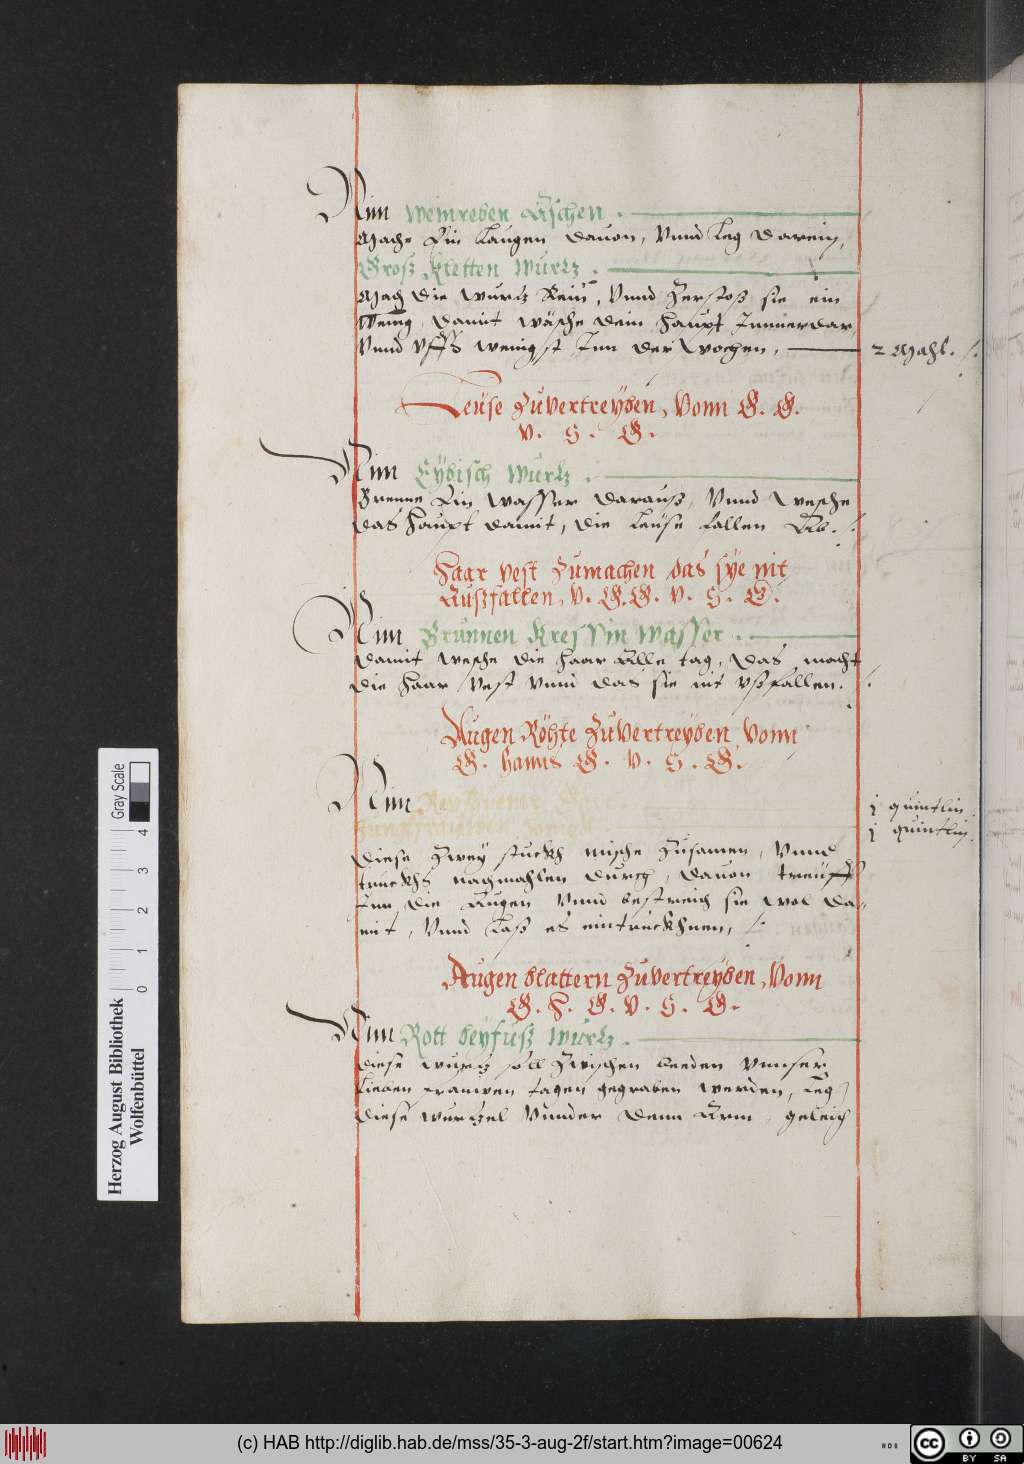 Nim Weinreben Äschen.
Mach Ein Laugen dauon, Vnnd Leg darein,
Groß Kletten Wurtz.
Mach die wurtz Rein, Vnnd Zerstoß sie ein
Wenig, damit wäsche dein Haupt Immerdar,
Vnnd vffs wenigst Inn der Wochen, 2 Mahl.
Leüse Zuvertreyben, Vonn G. G.
V. H. G.
Nim Eybisch Wurtz.
Brenne Ein Wasser darauß, Vnnd Wesche
das Haupt damit, die Leüse fallen Ab.
Haar vest Zumachen das sye nit
Außfallen, V. G. G. V. H. G.
Nim Brunnen Kressin Wasser.
damit Wesche die Haar Alle tag, das macht
die Haar Vest Vnnd das sie nit vßfallen.
Augen Röhte Zuvertreyben, Vonn
G. Hanns G. V. H. G.
Nim j quintlin.
j quintlin.
diese Zwey stuckh mische Zusamen, Vnnd
truckhs nachmahlen durch, dauon treüff
Inn die Augen Vnnd bestreich sie wol da-
mit, Vnnd Laß es eintruckhnen,
Augen blattern Zuvertreyben, Vonn
G. H. G. V. H. G.
Nim Rott beyfuß Wurtz.
diese wurtz soll Zwischen beeden Vnnser
Lieben frauwen tagen gegraben werden, Leg
diese wurtzel Vnnder denn Arm, geleich
Herzog August Bibliothek
Wolfenbüttel
0 1 2 3 4
Gray Scale
(c) HAB http://diglib.hab.de/mss/35-3-aug-2f/start.htm?image=00624
cc BY SA